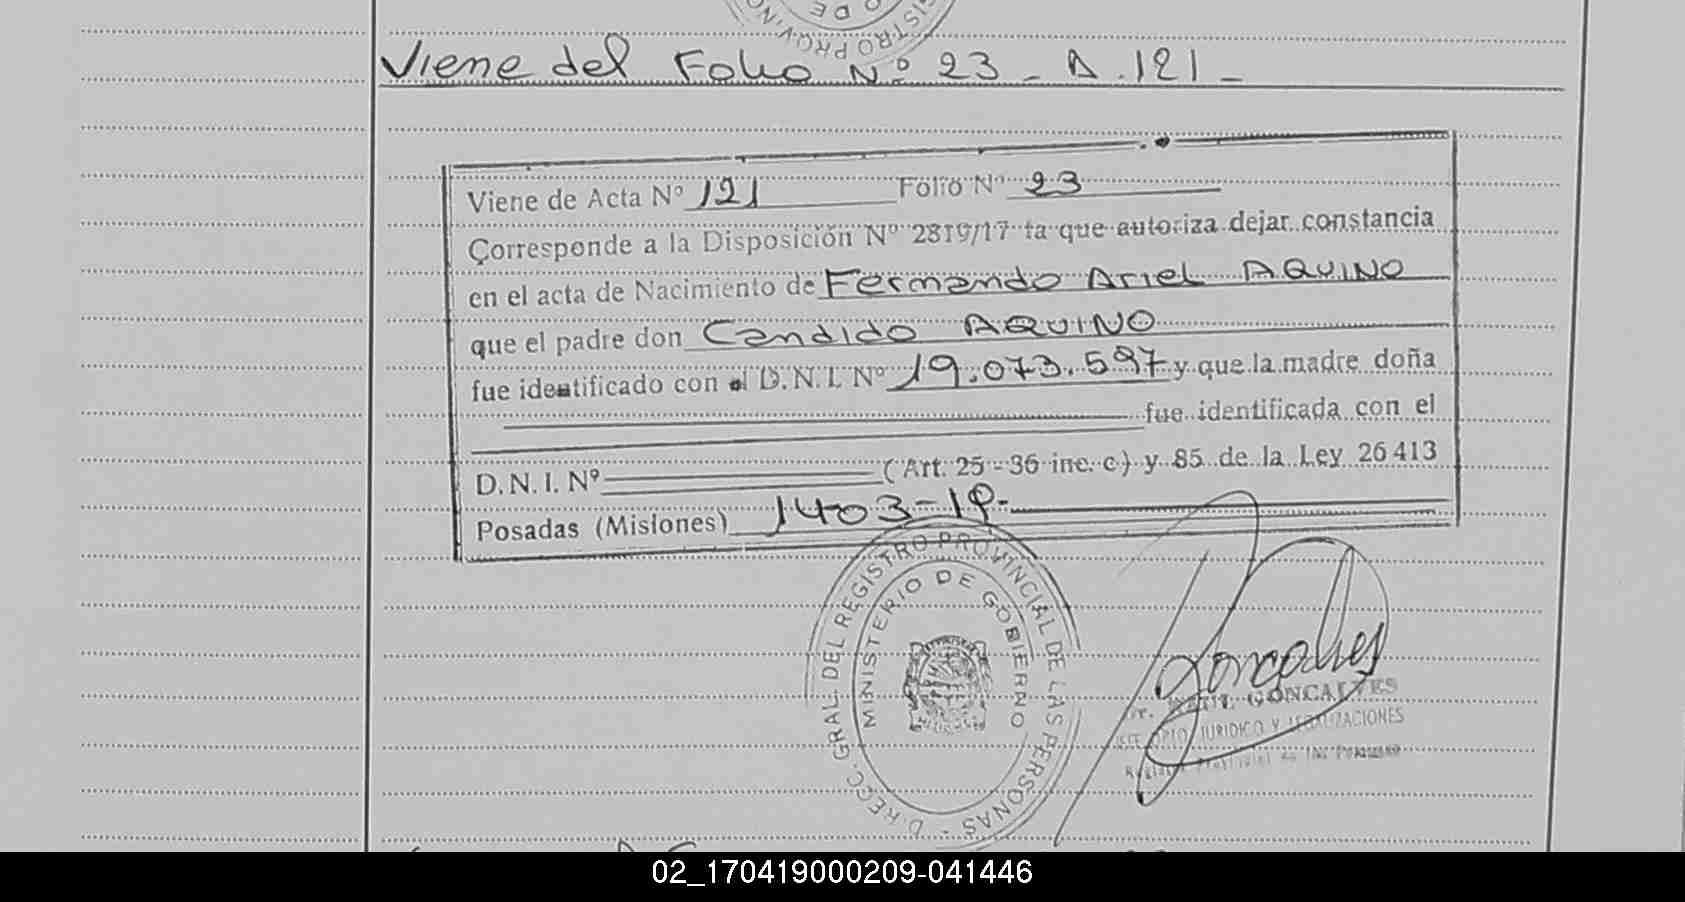 Viene del Folio Nº 23 - A. 121 -
Viene de Acta Nº 121 Folio Nº 23
Corresponde a la Disposición Nº 2819/17 la que autoriza dejar constancia
en el acta de Nacimiento de Fernando Ariel AQUINO
que el padre don Candido AQUINO
fue identificado con el D.N.I. Nº 19.073.597 y que la madre doña
fue identificada con el
D.N.I. Nº (Art. 25 - 36 inc. c) y 85 de la Ley 26413
Posadas (Misiones) 1403-19-
DIRECC. GRAL. DEL REGISTRO PROVINCIAL DE LAS PERSONAS -
MINISTERIO DE GOBIERNO
RAUL GONCALVES
JEFE DPTO JURIDICO Y LEGALIZACIONES
Registro Provincial de las Personas
02_170419000209-041446